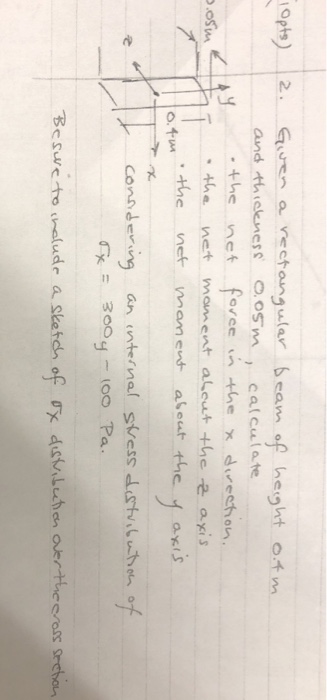 (10pts) 2. Given a rectangular beam of height 0.4m
and thickness 0.05m, calculate
• the net force in the x direction.
• the net moment about the z axis
• the net moment about the y axis
considering an internal stress distribution of
σx = 300y - 100 Pa.
Be sure to include a sketch of σx distribution over the cross section
0.05m
y
0.4m
x
z